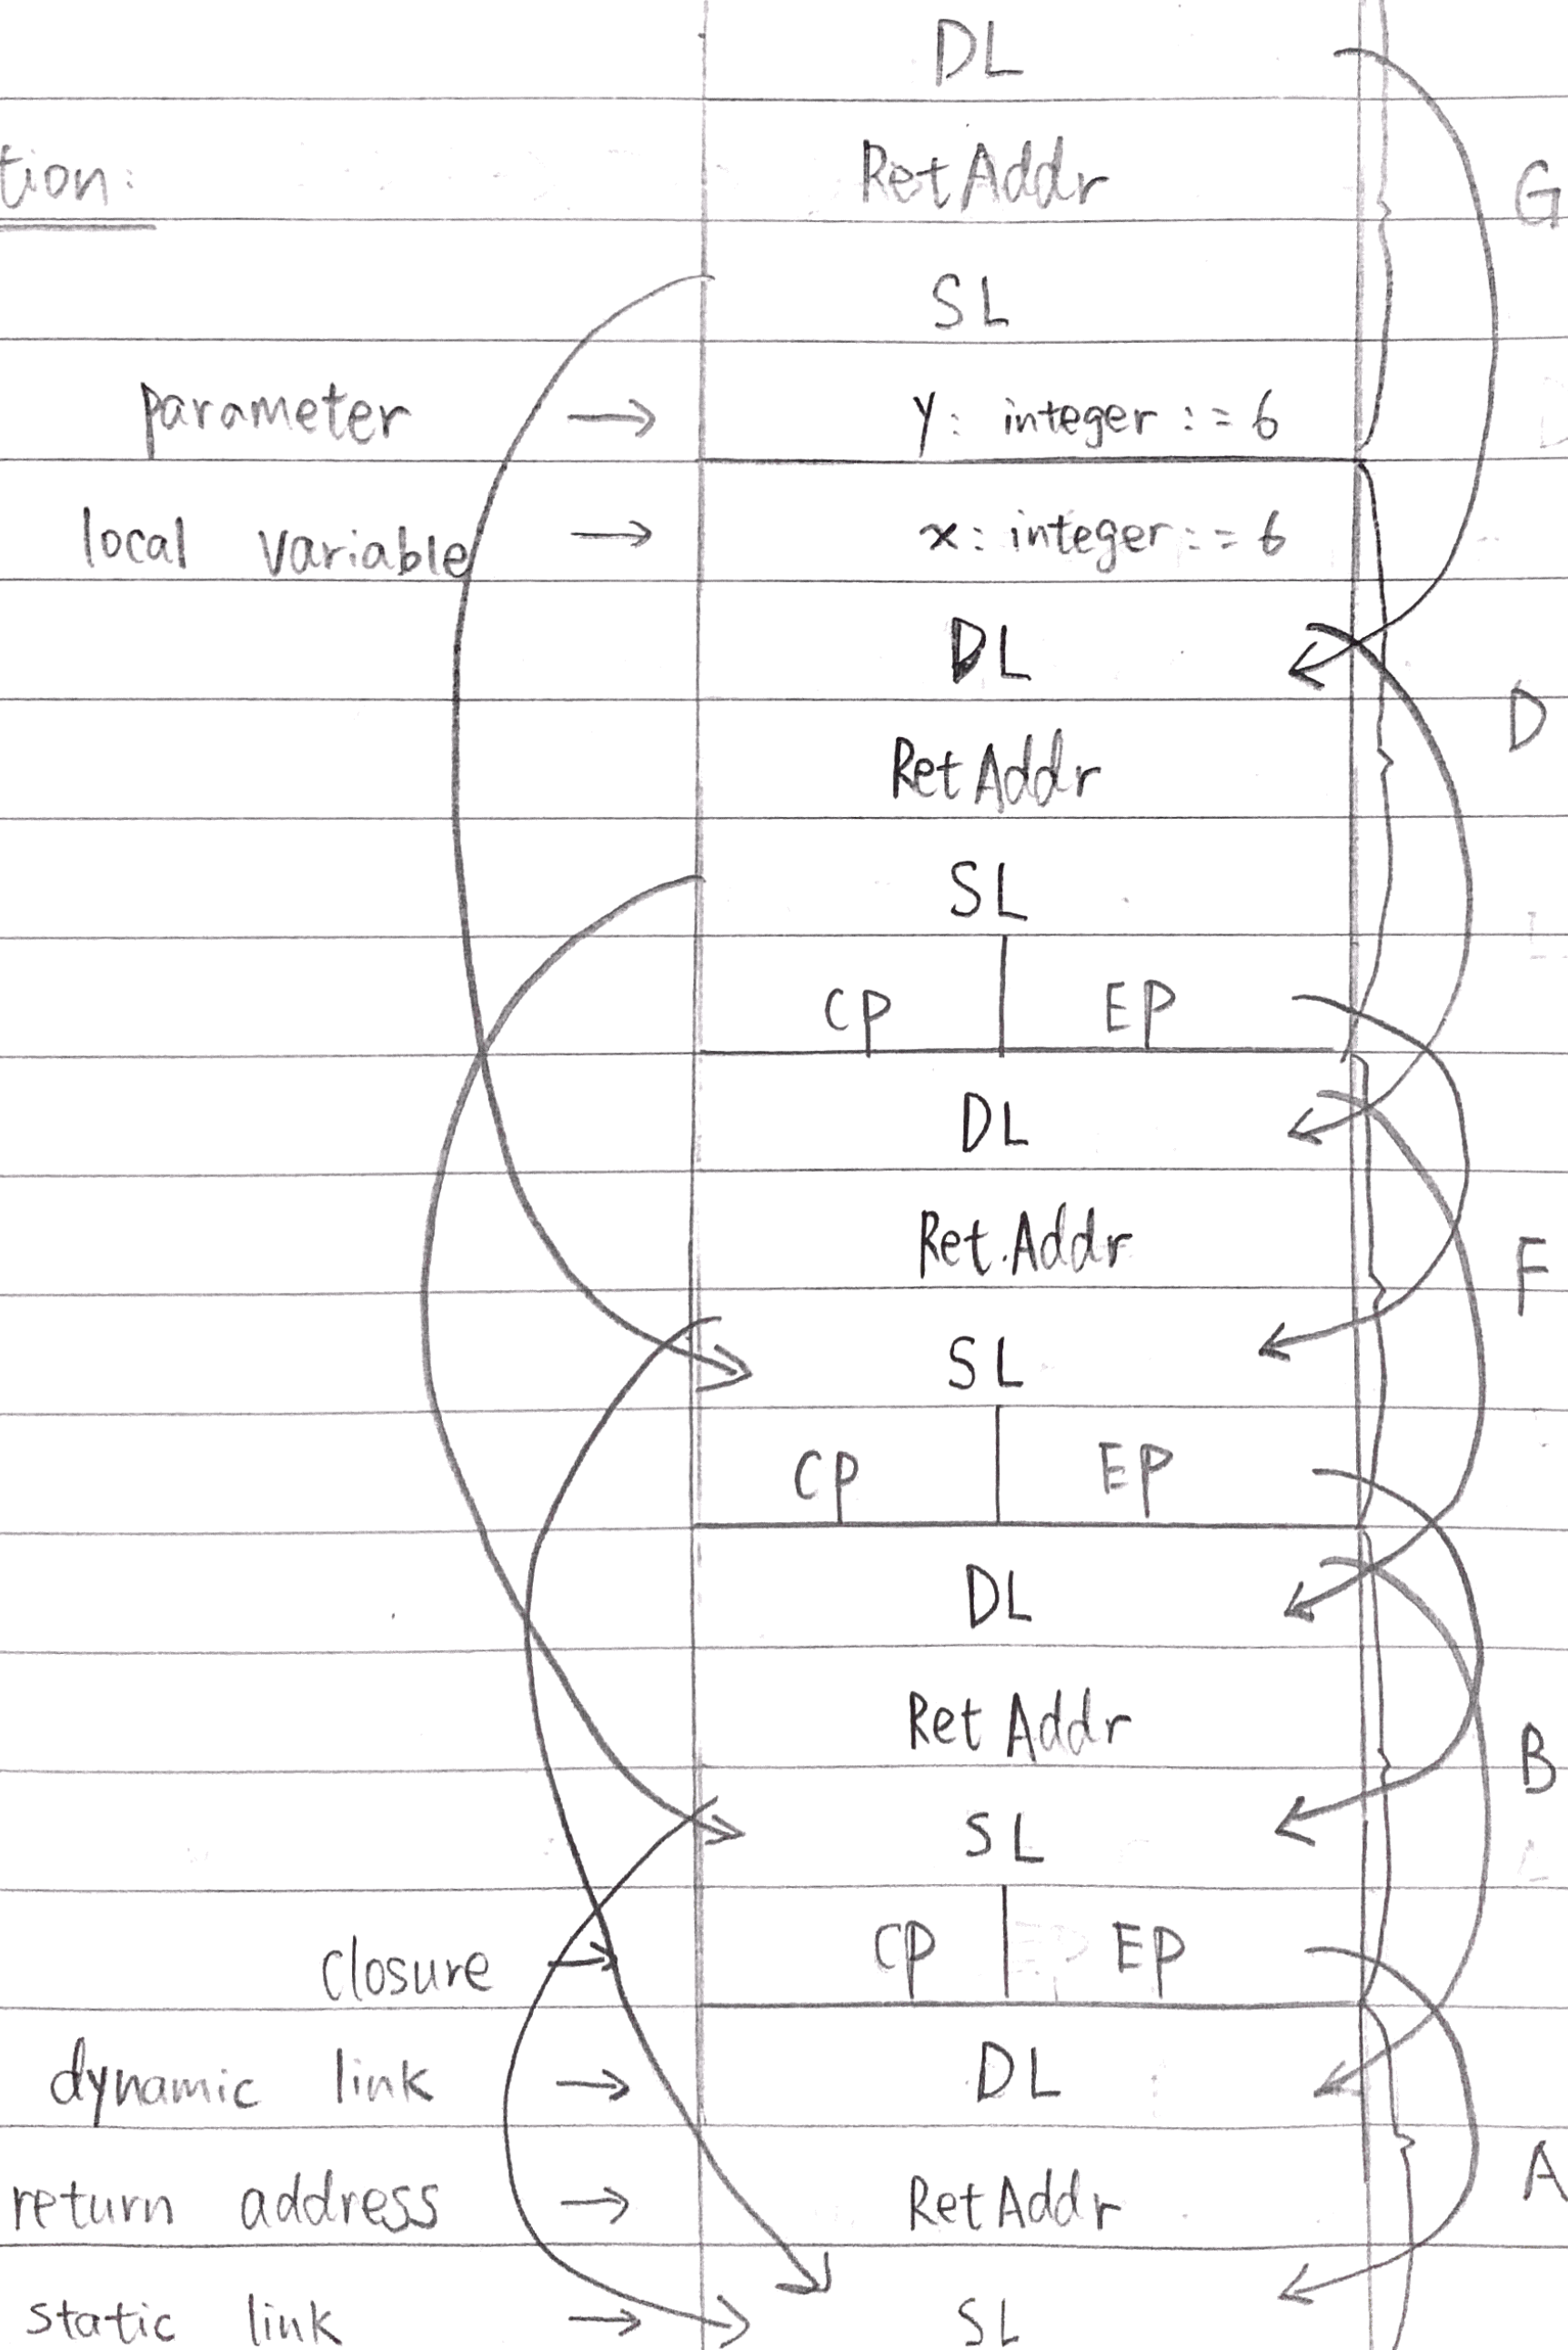 DL
RetAddr
G
tion:
SL
parameter → y: integer := 6
local variable → x: integer := 6
DL
D
RetAddr
SL
CP EP
DL
Ret.Addr
F
SL
CP EP
DL
RetAddr
B
SL
closure → CP EP
dynamic link → DL
A
return address → RetAddr
static link → SL